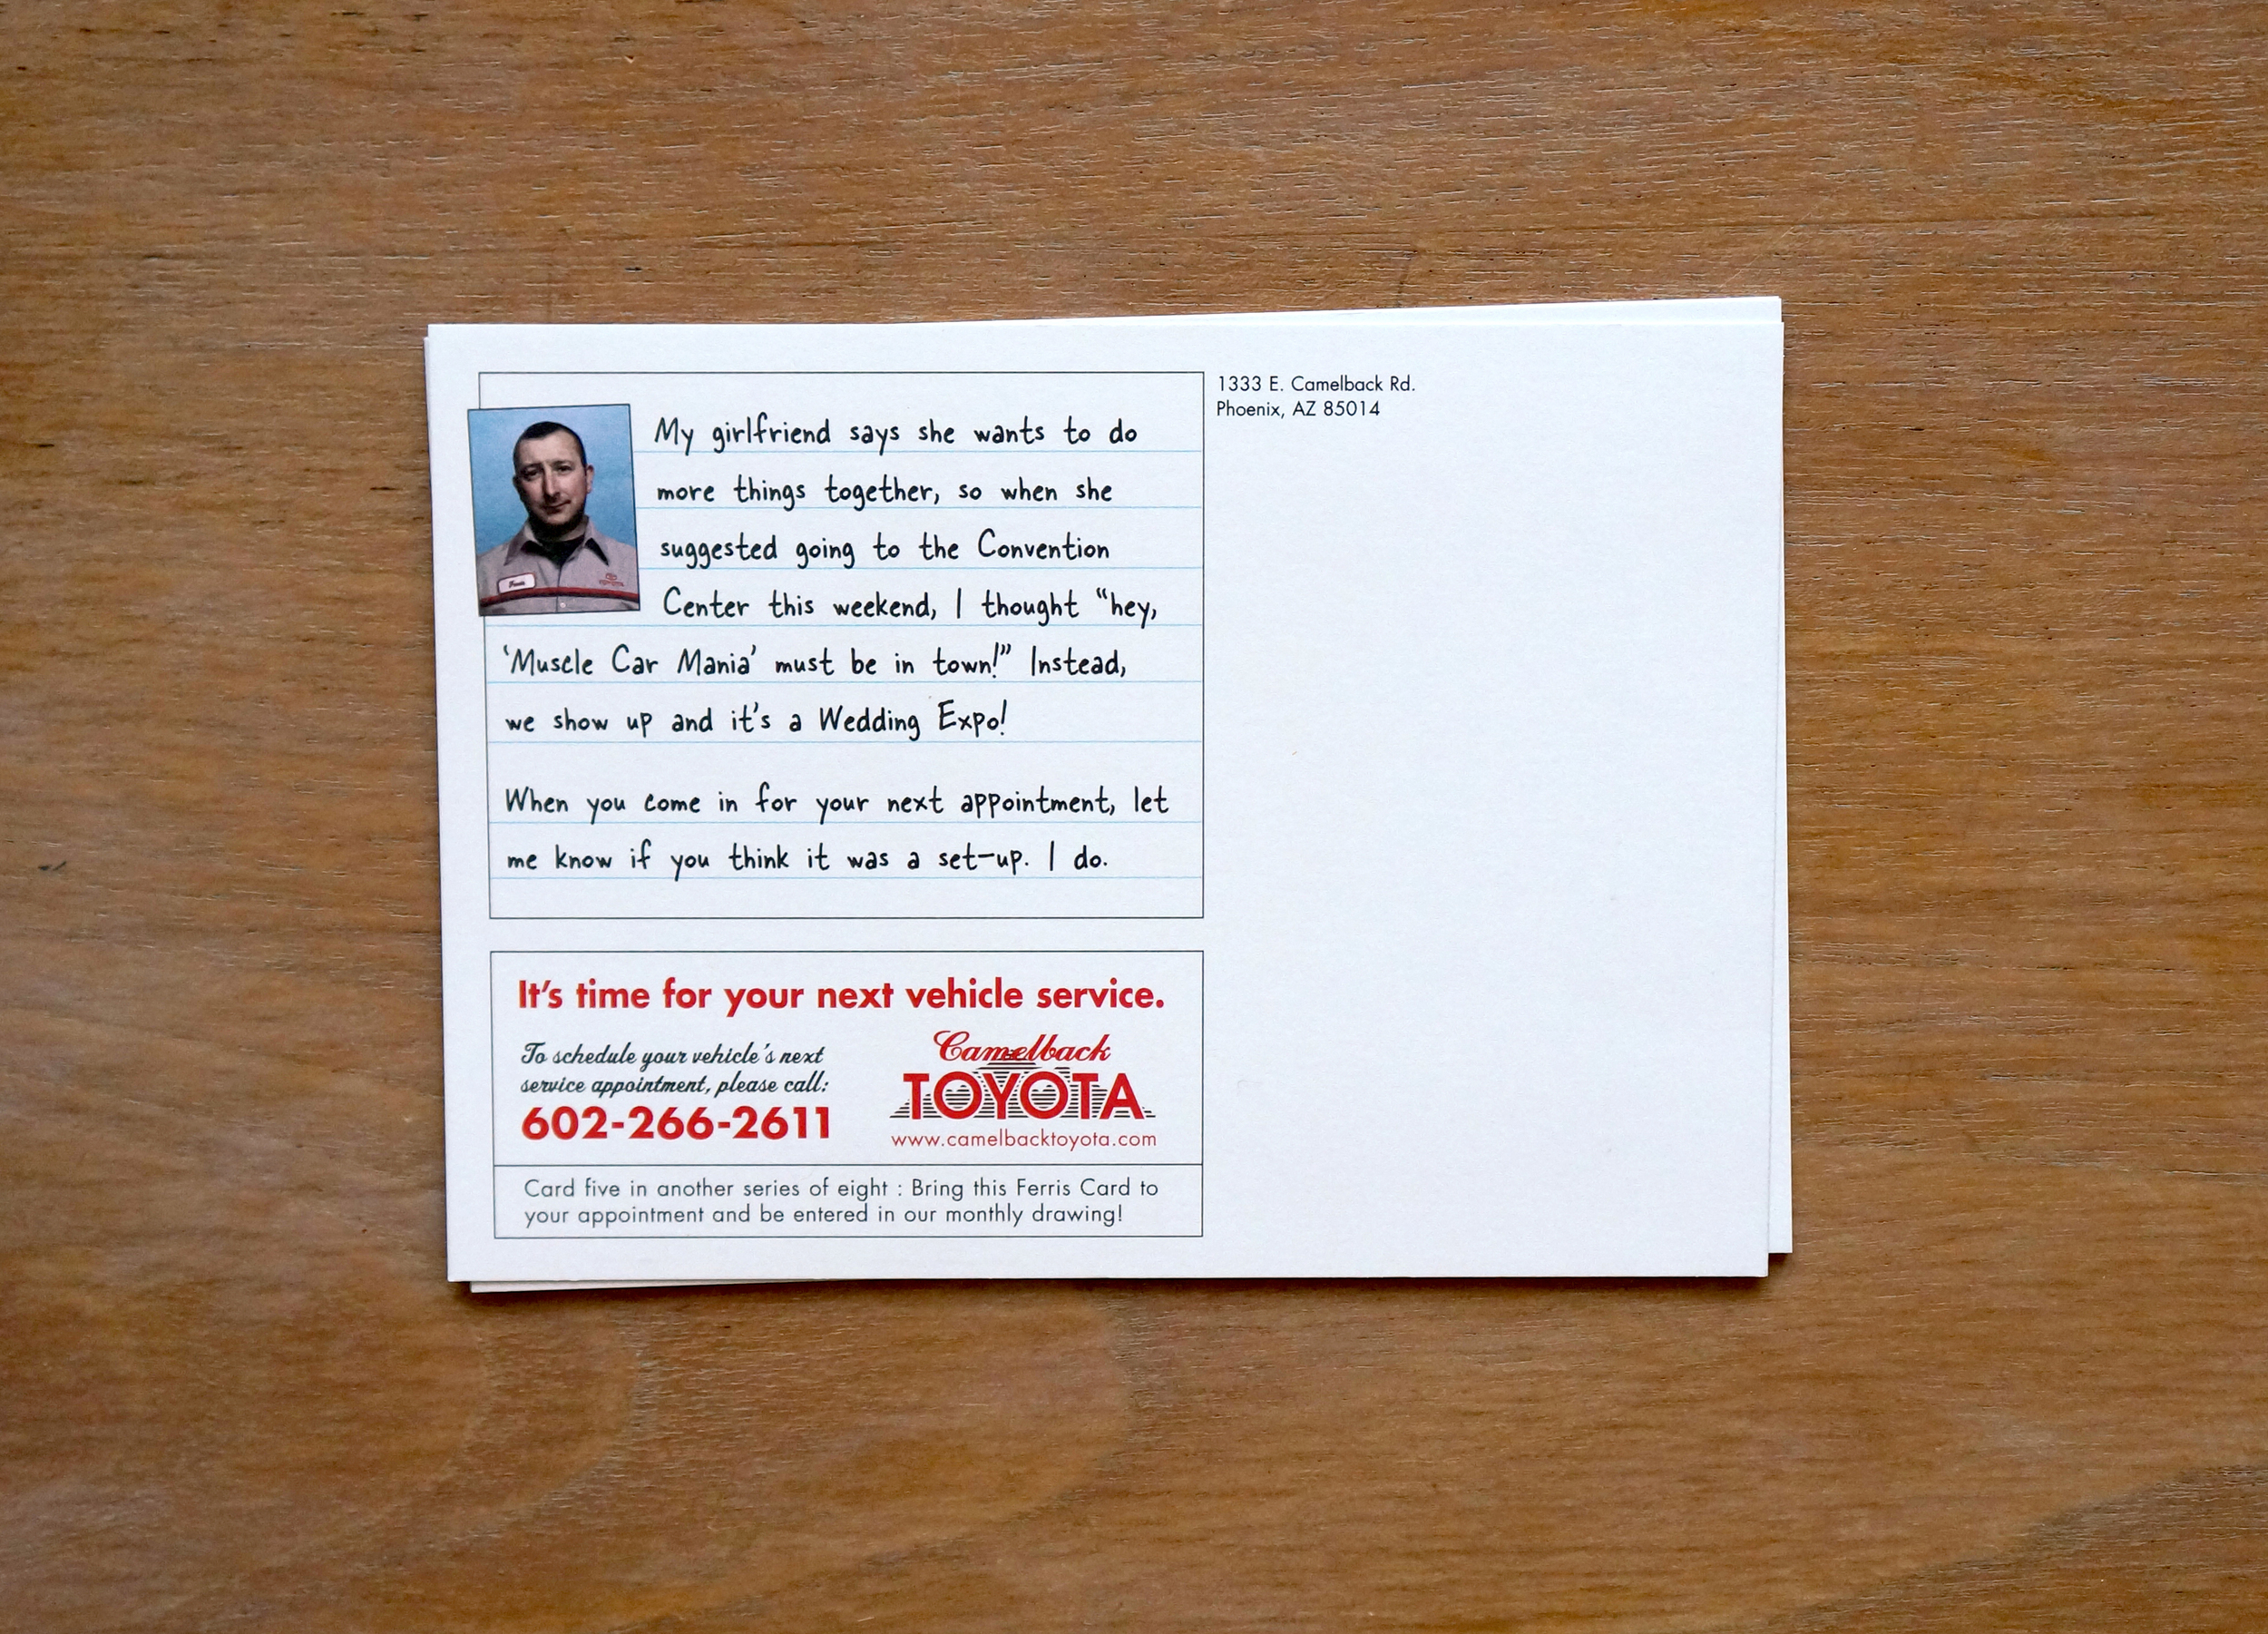 My girlfriend says she wants to do
more things together, so when she
suggested going to the Convention
Center this weekend, I thought “hey,
‘Muscle Car Mania’ must be in town!” Instead,
we show up and it’s a Wedding Expo!
When you come in for your next appointment, let
me know if you think it was a set-up. I do.
Ferris
TOYOTA
It’s time for your next vehicle service.
To schedule your vehicle’s next
service appointment, please call:
602-266-2611
Camelback
TOYOTA
www.camelbacktoyota.com
Card five in another series of eight : Bring this Ferris Card to
your appointment and be entered in our monthly drawing!
1333 E. Camelback Rd.
Phoenix, AZ 85014